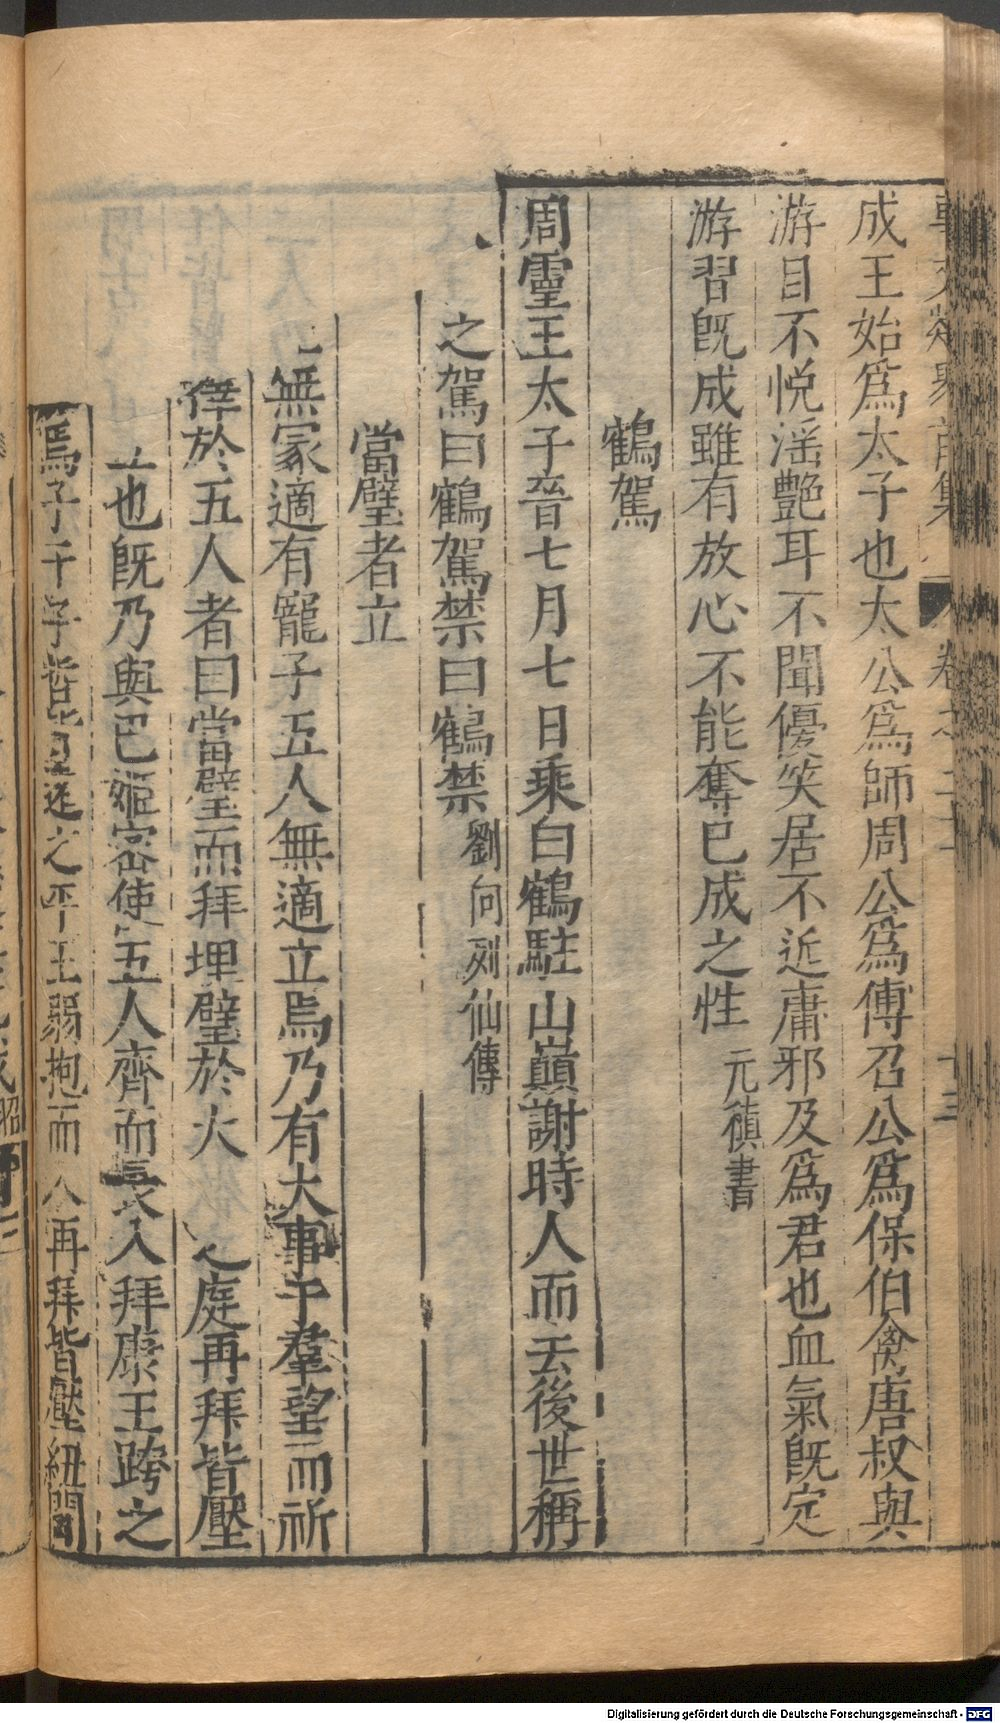 成王始爲太子也太公爲師周公爲傅召公爲保伯禽唐叔與
游目不悅淫艷耳不聞優笑居不近庸邪及爲君也血氣旣定
游習旣成雖有放心不能奪已成之性 元稹書
鶴駕
周靈王太子晉七月七日乘白鶴駐山巔謝時人而去後世稱
之駕曰鶴駕禁曰鶴禁 劉向列仙傳
當璧者立
無冢適有寵子五人無適立焉乃有大事于羣望而祈
於五人者曰當璧而拜埋璧於大 之庭再拜皆壓
也旣乃與巴姬密使五人齊而長入拜康王跨之
焉子干子晳皆遠之平王弱抱而入再拜皆壓紐鬬
卷之二十
十三
昭
Digitalisierung gefördert durch die Deutsche Forschungsgemeinschaft - DFG